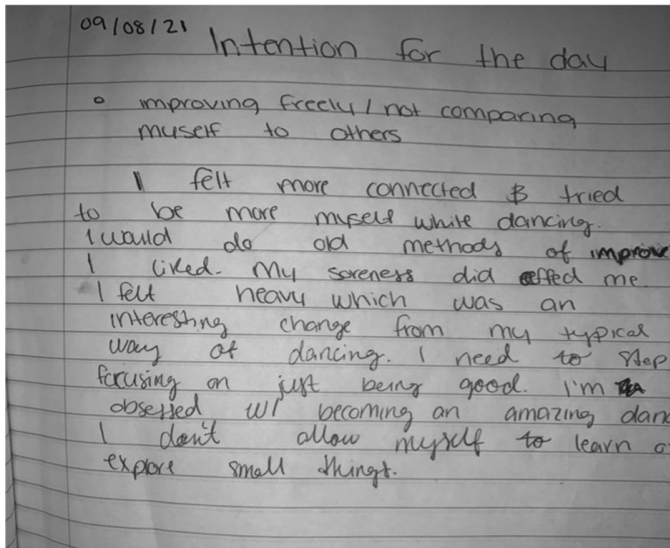 09/08/21
Intention for the day
o improving freely / not comparing
myself to others
I felt more connected & tried
to be more myself while dancing.
I would do old methods of improv
I liked. My soreness did effed me
I felt heavy which was an
interesting change from my typical
way of dancing. I need to step
focusing on just being good. I'm
obsessed w/ becoming an amazing danc
I don't allow myself to learn o
explore small things.